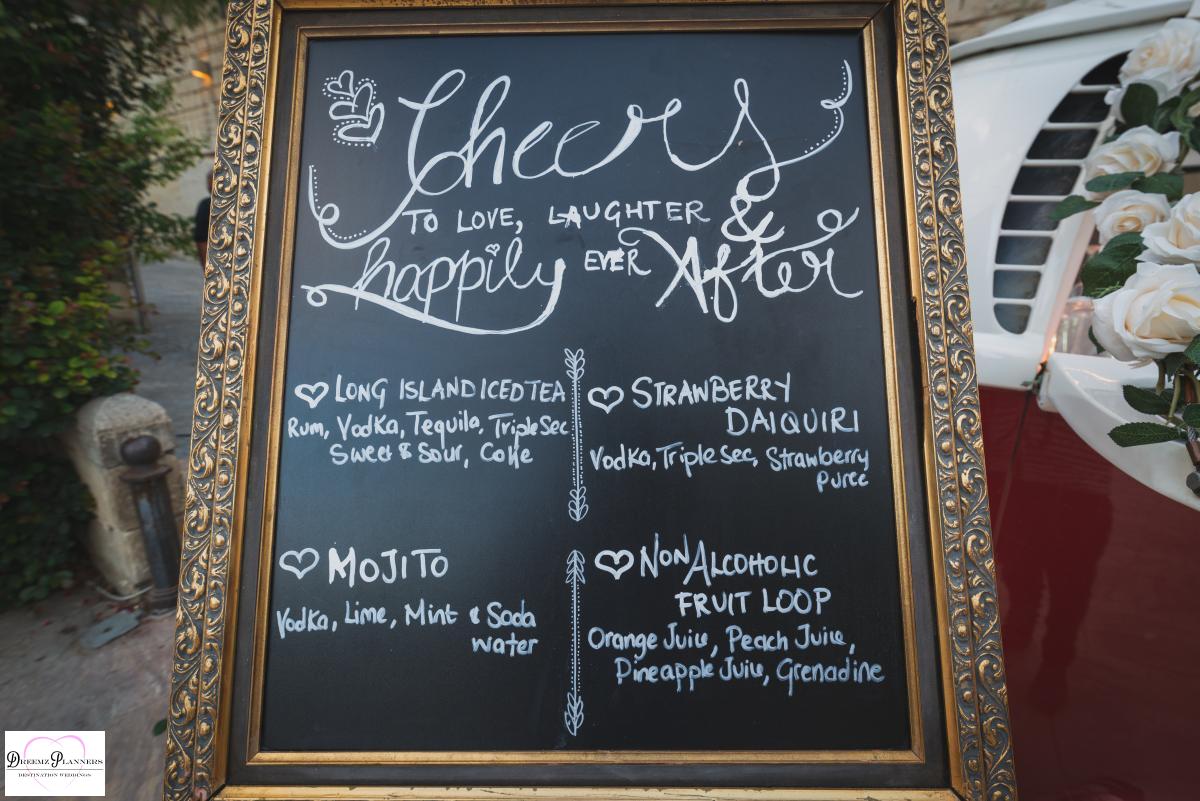 Cheers
TO LOVE, LAUGHTER &
happily EVER After
LONG ISLAND ICED TEA
Rum, Vodka, Tequila, Triple Sec,
Sweet & Sour, Coke
STRAWBERRY
DAIQUIRI
Vodka, Triple Sec, Strawberry
puree
MOJITO
Vodka, Lime, Mint & Soda
water
NON ALCOHOLIC
FRUIT LOOP
Orange Juice, Peach Juice,
Pineapple Juice, Grenadine
DREEMZ PLANNERS
DESTINATION WEDDINGS